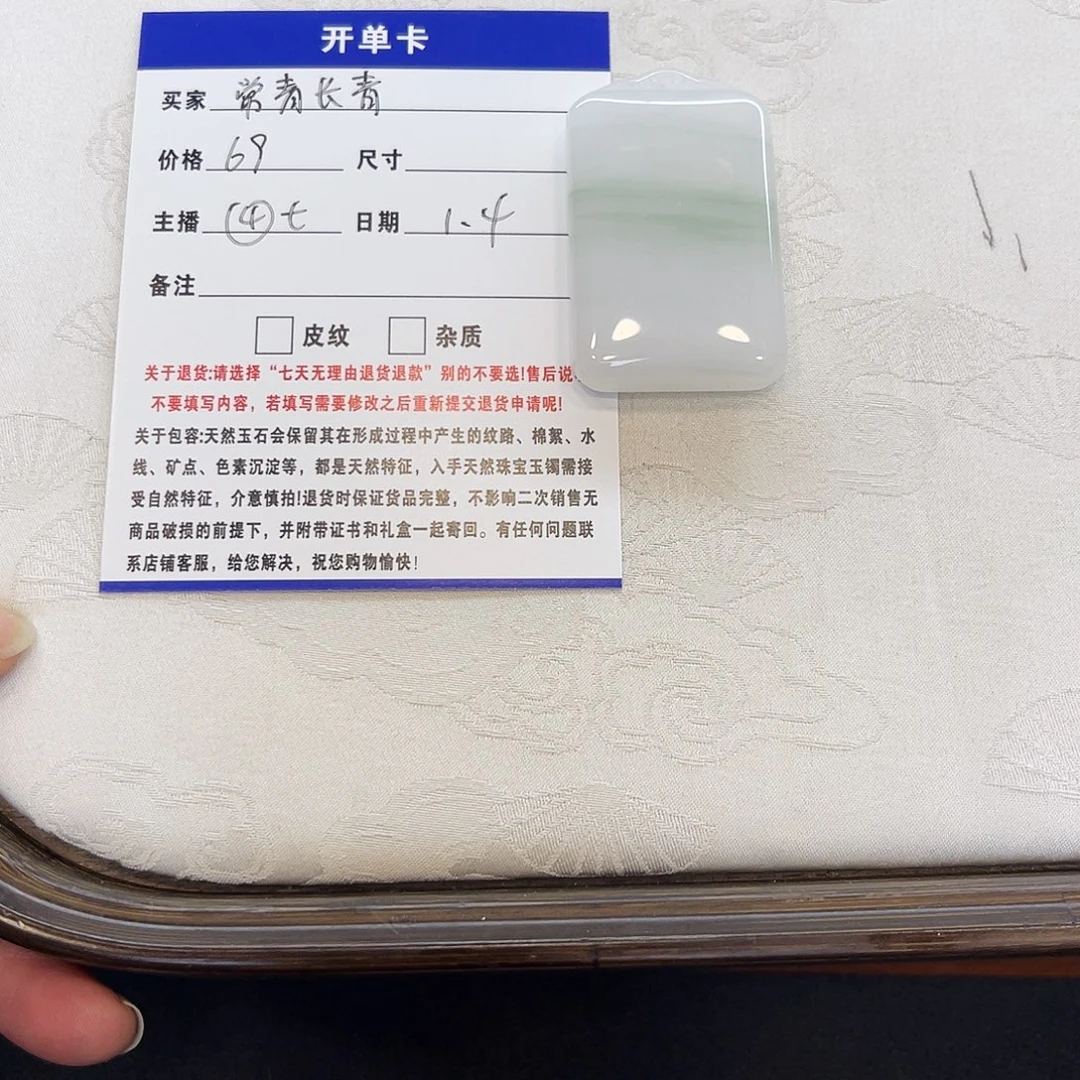 开单卡
买家 常青长青
价格 69 尺寸
主播 ④七 日期 1.4
备注
皮纹 杂质
关于退货:请选择“七天无理由退货退款”别的不要选!售后说
不要填写内容，若填写需要修改之后重新提交退货申请呢!
关于包容:天然玉石会保留其在形成过程中产生的纹路、棉絮、水
线、矿点、色素沉淀等，都是天然特征，入手天然珠宝玉镯需接
受自然特征，介意慎拍!退货时保证货品完整，不影响二次销售无
商品破损的前提下，并附带证书和礼盒一起寄回。有任何问题联
系店铺客服，给您解决，祝您购物愉快!